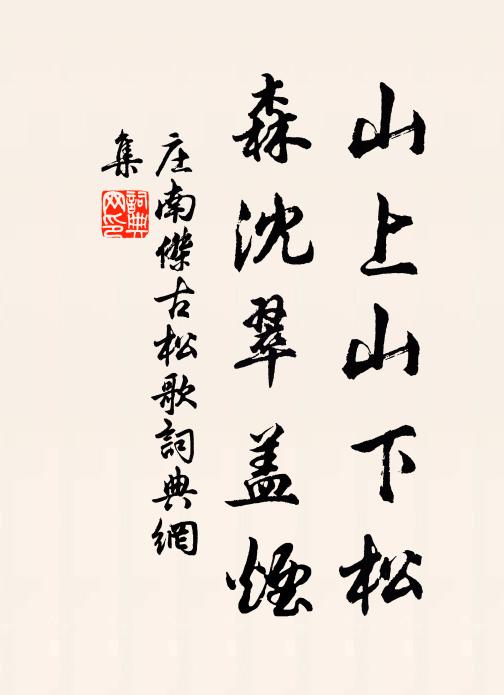 山上山下松
森沈翠盖煙
庄南傑古松歌詞典網
集
詞典
网印